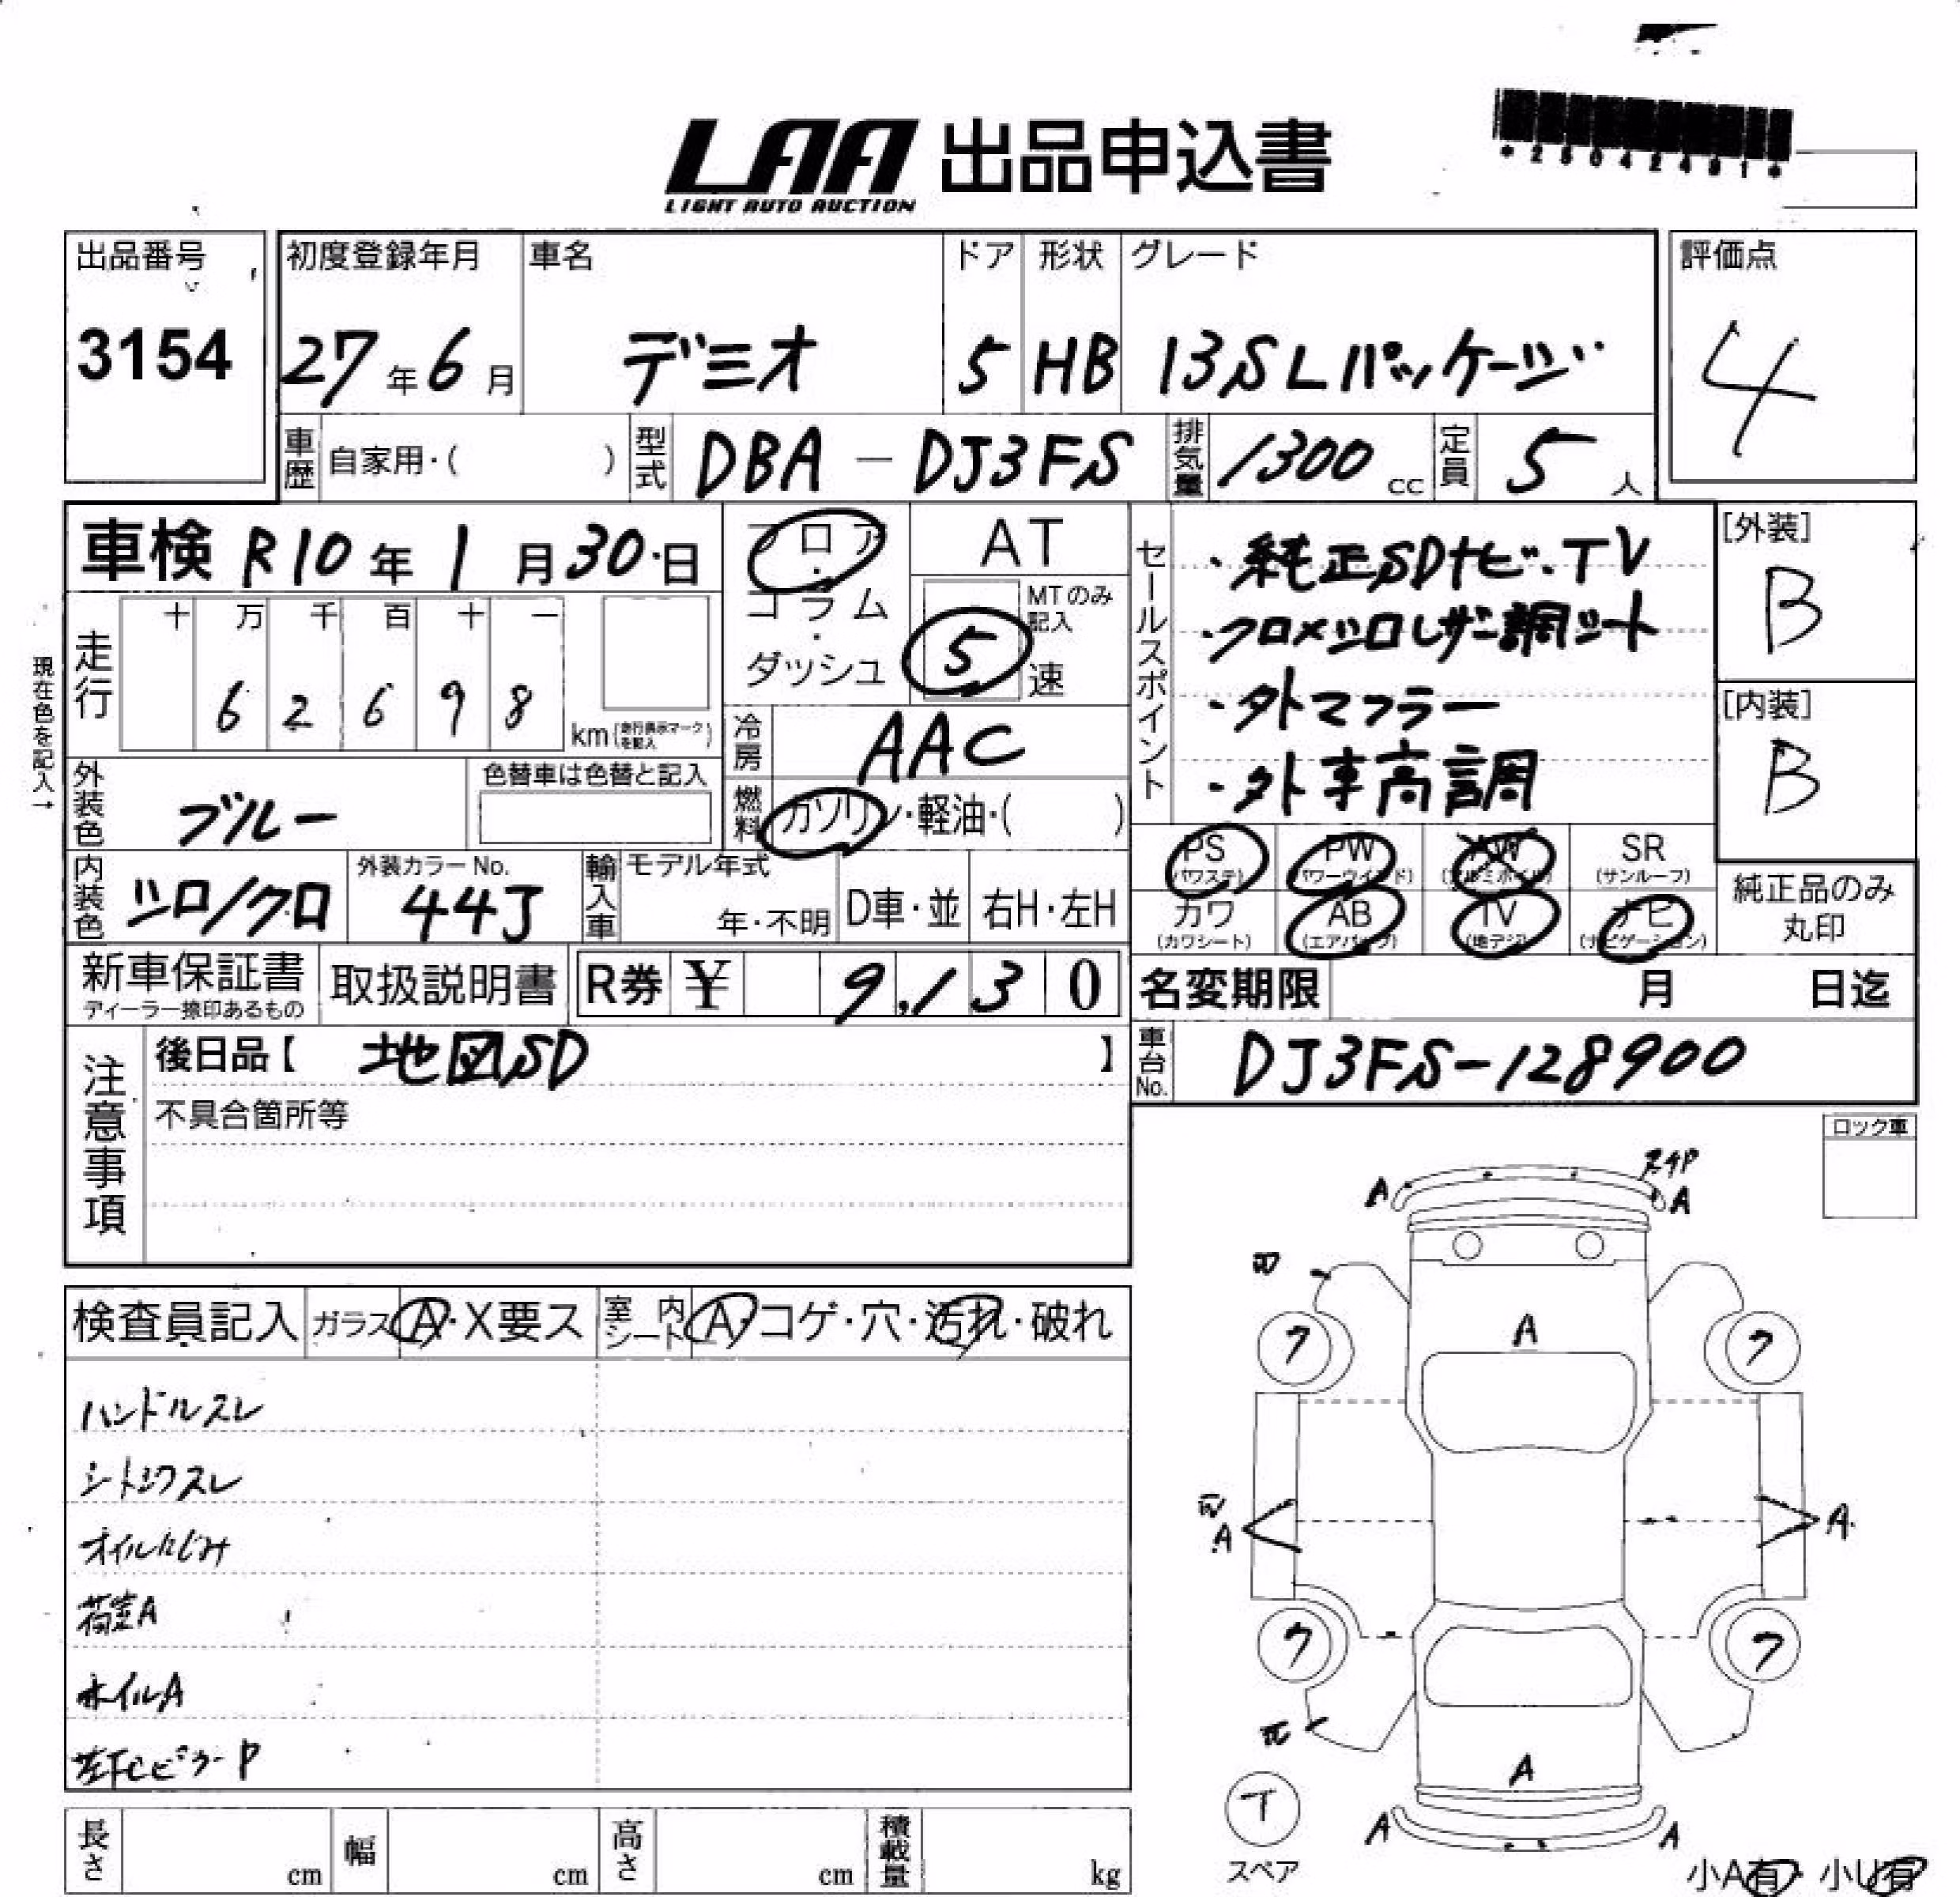 LAA 出品申込書
LIGHT AUTO AUCTION
出品番号 初度登録年月 車名 ドア 形状 グレード 評価点
3154 27年6月 デミオ 5 HB 13S Lパッケージ 4
車歴 自家用・( ) 型式 DBA - DJ3FS 排気量 1300 cc 定員 5 人
車検 R10年 1月30日 フロア・コラム・ダッシュ AT
MTのみ記入 5 速
現在色を記入→
走行 十 万 千 百 十 一
6 2 6 9 8 km (走行表示マークを記入)
冷房 AAC
セールスポイント
・純正SDナビ.TV
・外マフラー
・外車高調
[外装] B
[内装] B
外装色 ブルー 色替車は色替と記入 燃料 ガソリン・軽油・( )
PS (パワステ) PW (パワーウインド) AW (アルミホイル) SR (サンルーフ)
カワ (カワシート) AB (エアバッグ) TV (地デジ) ナビ (ナビゲーション)
純正品のみ丸印
内装色 シロ/クロ 外装カラーNo. 44J 輸入車 モデル年式 年・不明 D車・並 右H・左H
新車保証書 ディーラー捺印あるもの 取扱説明書 R券 ¥ 9,130 名変期限 月 日迄
注意事項 後日品【 地図SD 】 車台No. DJ3FS-128900
不具合箇所等
ロック車
検査員記入 ガラス A・X要ス 室内シート A・コゲ・穴・汚れ・破れ
ハンドルスレ
シートシワスレ
オイルにじみ
荷室A
ホイルA
左下CピラーP
A A
A
ワ ワ
A A
ワ ワ
A
T
スペア
A A
長さ cm 幅 cm 高さ cm 積載量 kg
小A有・小U有